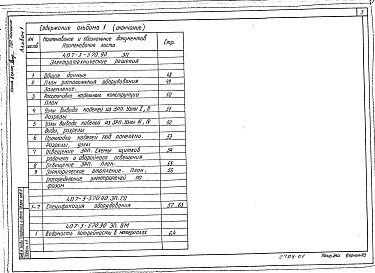 5
Альбом 1
Содержание альбома 1 (окончание)
NN листов
Наименование и обозначение документов
Наименование листа
Стр.
407-3-570.90 ЭП
Электротехнические решения
1 Общие данные 48
2 План расположения оборудования 49
Заземление.
3 Расстановка кабельных конструкций 50
План
4 Узлы вывода кабелей из ЗРП. Узлы I, II 51
Разрезы
5 Узлы вывода кабелей из ЗРП. Узлы III, IV 52
Виды, разрезы
6 Прокладка кабелей под панелями. 53
Разрезы, узлы
7 Освещение ЗРП. Схемы щитков 54
рабочего и аварийного освещения
8 Освещение ЗРП. План. 55
9 Электрическое отопление. План, 56
распределение электропечей по
фазам
407-3-570.90 ЭП.СО
1-7 Спецификация оборудования 57..63
407-3-570.90 ЭП.ВМ
1 Ведомость потребности в материалах 64
2708-01
Формат А3